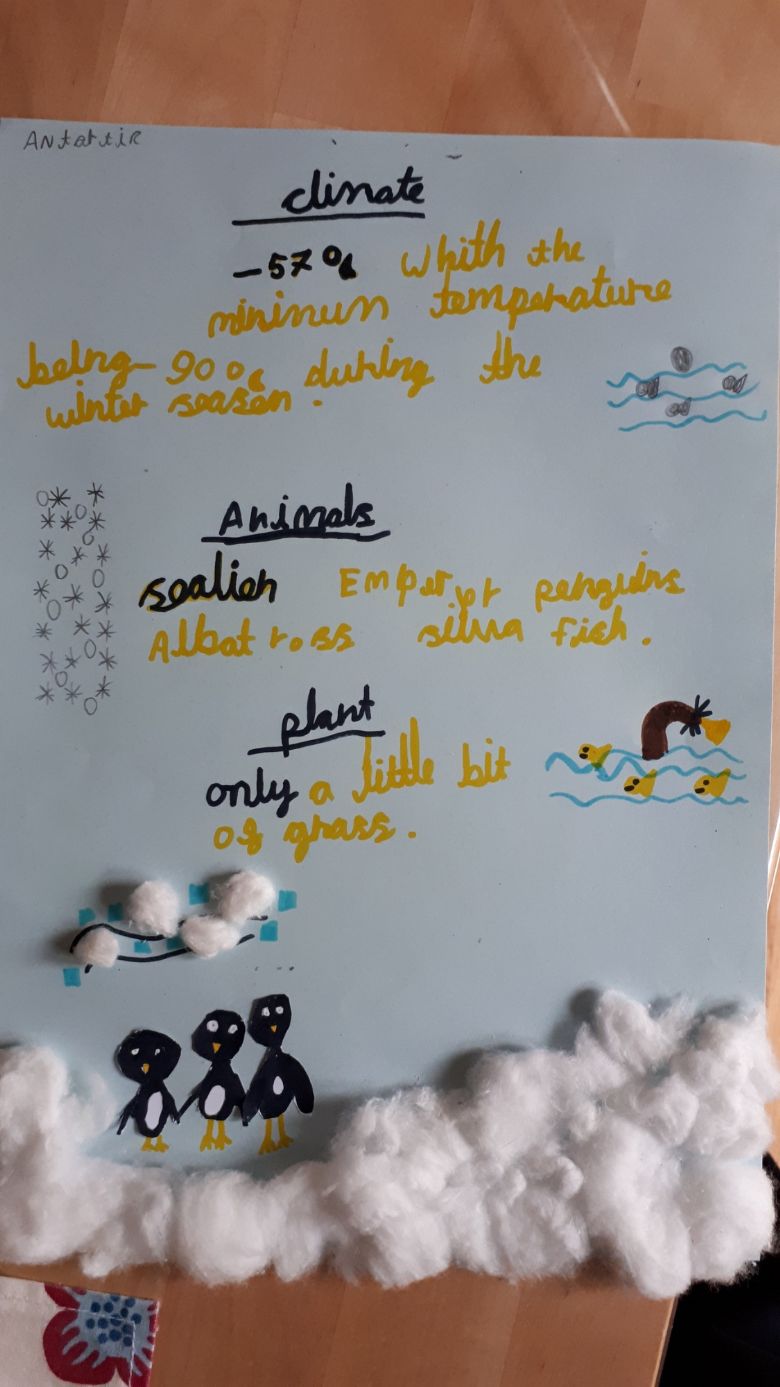 ANtartiR
climate
-57°c Whith the
mininun temperature
being -90°c during the
winter season.
Animals
sealion Emperor penguins
Albatross silva fish.
plant
only a little bit
of grass.